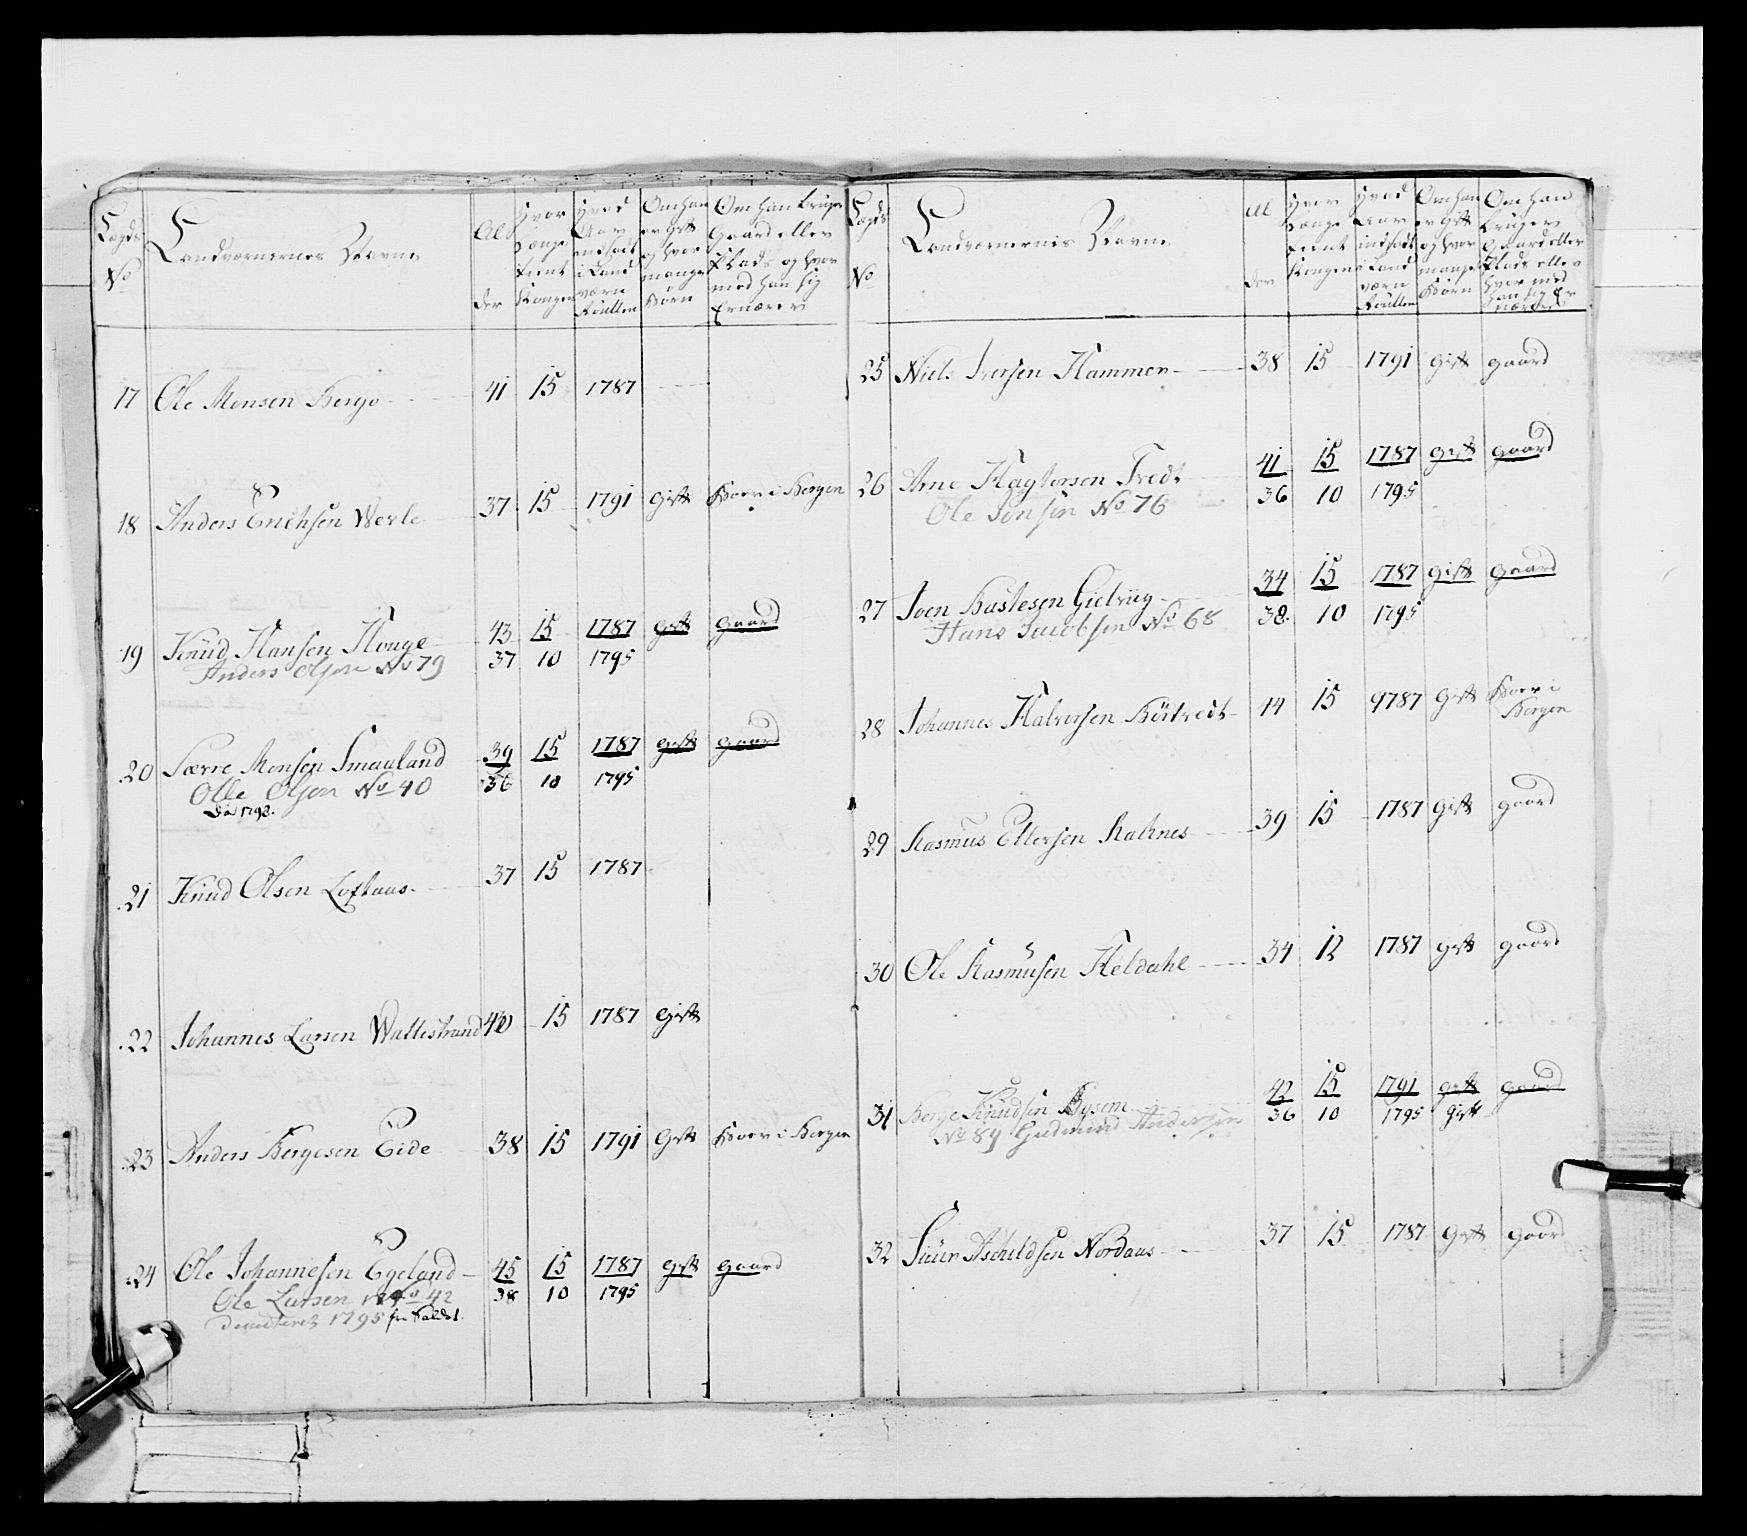 Lægds No
Landværnernes Navne
Alder
Hvor Længe tient Kongen
Hvad Aar indsadt i Land værn Roullen
Om han er gift og hvor mange Børn
Om han bruger Gaard eller Plads og hvor med han sig Ernærer
17 Ole Monsen Bergo 41 15 1787
18 Anders Erichsen Werle 37 15 1791 Gift Boer i Bergen
19 Knud Hansen Houge 43 15 1787 gift gaard
Anders Olsen No 79 37 10 1795
20 Særre Monsen Smauland 39 15 1787 gift gaard
Olle Olsen No 40 36 10 1795
Død 1798.
21 Knud Olsen Lofthaus 37 15 1787
22 Johannes Larsen Wattestrand 40 15 1787 Gift
23 Anders Bergesen Eide 38 15 1791 Gift Boer i Bergen
24 Ole Johannesen Egeland 45 15 1787 gift gaard
Ole Larsen No 42 38 10 1795
1795
Lægds No
Landværnernis Navne
Alder
Hvor Længe tient Kongen
Hvad Aar indsadt i Land værn Roullen
Om han er gift og hvor mange Børn
Om han bruger Gaard eller Plads eller hvor med han sig Er nærer
25 Niels Iversen Hammer 38 15 1791 Gift gaard
26 Arne Hagtorsen Tredt 41 15 1787 gift gaard
Ole Jonsen No 76 36 10 1795
27 Joen Bastesen Gielrüg 34 15 1787 gift gaard
Hans Jacobsen No 68 38 10 1795
28 Johannes Halversen Börtvedt 44 15 9787 Gift Boer i
Bergen
29 Rasmus Ellersen Raknes 39 15 1787 gift gaard
30 Ole Rasmusen Heldahl 34 12 1787 gift gaard
31 Berge Knudsen Bysem 42 15 1791 gift gaard
No 84 Gudmund Andersen 36 10 1795 gift
32 Siur Aschildsen Nordaas 37 15 1787 Gift gaard